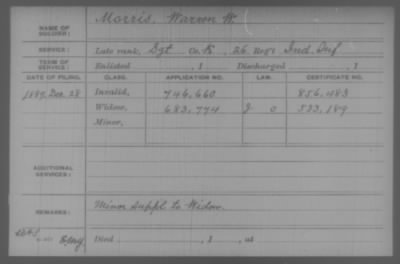 NAME OF SOLDIER: Morris, Warren W.
SERVICE: Late rank, Sgt Co. K, 26 Reg't Ind. Inf
TERM OF SERVICE: Enlisted , 1 Discharged , 1
DATE OF FILING. CLASS. APPLICATION NO. LAW. CERTIFICATE NO.
1889, Dec. 28 Invalid, 746,660 856,483
Widow, 683,774 O 523,189
Minor,
ADDITIONAL SERVICES:
REMARKS: Minor Suppl to Widow.
Died , 1 , at